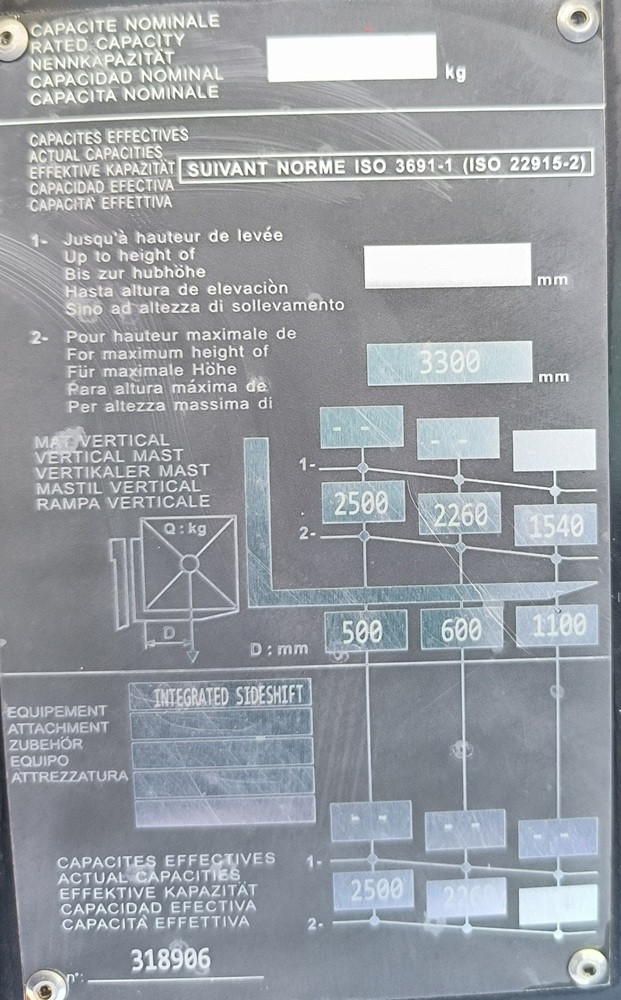 CAPACITE NOMINALE
RATED CAPACITY
NENNKAPAZITÄT
CAPACIDAD NOMINAL
CAPACITA NOMINALE
kg
CAPACITES EFFECTIVES
ACTUAL CAPACITIES
EFFEKTIVE KAPAZITÄT
CAPACIDAD EFECTIVA
CAPACITA' EFFETTIVA
SUIVANT NORME ISO 3691-1 (ISO 22915-2)
1- Jusqu'à hauteur de levée
Up to height of
Bis zur hubhöhe
Hasta altura de elevaciòn
Sino ad altezza di sollevamento
mm
2- Pour hauteur maximale de
For maximum height of
Für maximale Höhe
Para altura máxima de
Per altezza massima di
3300 mm
MAT VERTICAL
VERTICAL MAST
VERTIKALER MAST
MASTIL VERTICAL
RAMPA VERTICALE
- - - -
1-
2500 2260 1540
2-
Q : kg
D
D : mm
500 600 1100
EQUIPEMENT
ATTACHMENT
ZUBEHÖR
EQUIPO
ATTREZZATURA
INTEGRATED SIDESHIFT
- - - - - -
CAPACITES EFFECTIVES
ACTUAL CAPACITIES
EFFEKTIVE KAPAZITÄT
CAPACIDAD EFECTIVA
CAPACITÀ EFFETTIVA
1-
2500 2260
2-
n°: 318906